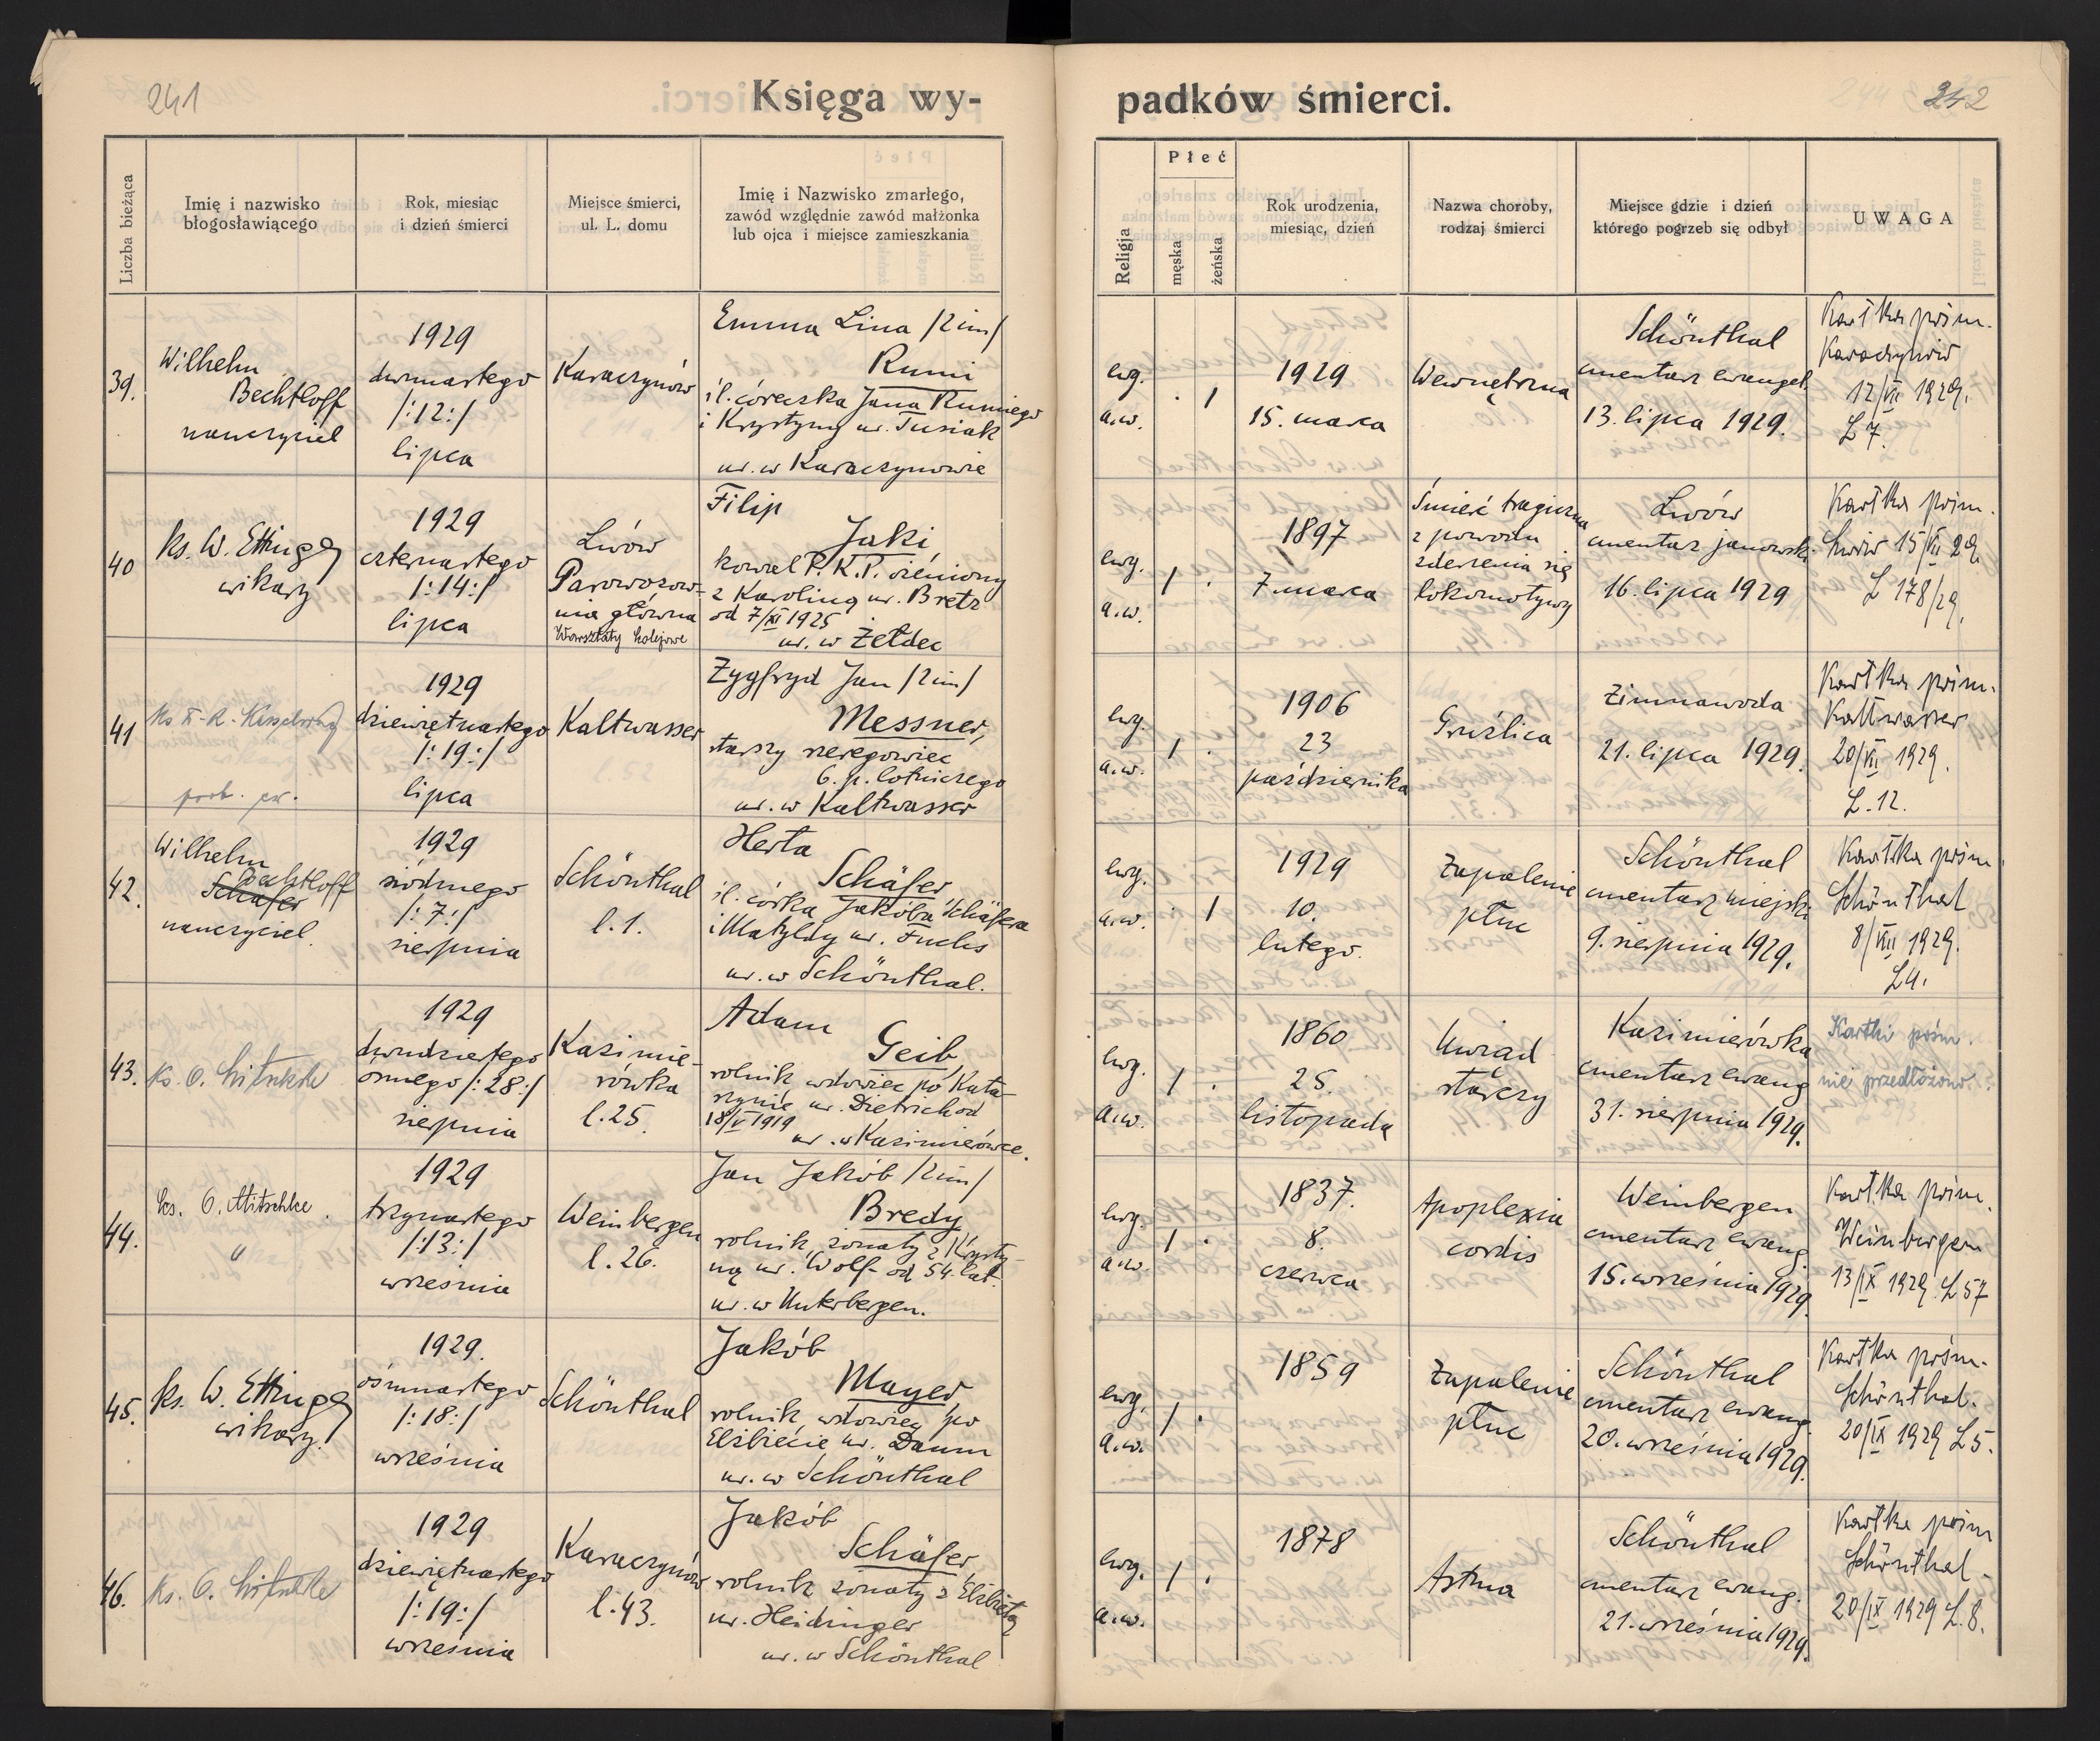 241
Księga wy-
padków śmierci.
242
Liczba bieżąca
Imię i nazwisko
błogosławiącego
Rok, miesiąc
i dzień śmierci
Miejsce śmierci,
ul. L. domu
Imię i Nazwisko zmarłego,
zawód względnie zawód małżonka
lub ojca i miejsce zamieszkania
Religja
Płeć
męska
żeńska
Rok urodzenia,
miesiąc, dzień
Nazwa choroby,
rodzaj śmierci
Miejsce gdzie i dzień
którego pogrzeb się odbył
UWAGA
39.
Wilhelm
Bechtloff
nauczyciel
1929
dwunastego
/:12:/
lipca
Karaczynów
Emma Lina /2 im/
Rumi
śl. córeczka Jana Rumiego
i Krystyny ur. Tusiak
ur. w Karaczynowie
ewg.
a.w.
. 1
1929
15. marca
Wewnętrzna
Schönthal
cmentarz ewangel.
13. lipca 1929.
Kartka pośm.
Karaczynów
12/VII 1929.
L 7.
40
ks. W. Ettinger
wikary
1929
czternastego
/:14:/
lipca
Lwów
Parowozow-
nia główna
Warsztaty kolejowe
Filip
Jaki,
kowal P.K.P. żeniony
z Karoliną ur. Bretz
od 7/XI 1925
ur. w Żełdec
ewg.
a.w.
1 .
1897
7 marca
Śmierć tragiczna
z powodu
zderzenia się
lokomotywy
Lwów
cmentarz janowski
16. lipca 1929
Kartka pośm.
Lwów 15/VII 29.
L 178/29.
41
prob. ew.
1929
dziewiętnastego
/:19:/
lipca
Kaltwasser
Zygfryd Jan /2 im/
Messner,
starszy szeregowiec
6. p. lotniczego
ur. w Kaltwasser
ewg.
a.w.
1 .
1906
23
października
Gruźlica
Zimnawoda
21. lipca 1929.
Kartka pośm.
Kaltwasser
20/VII 1929.
L. 12.
42.
Wilhelm
Bechtloff
Schäfer
nauczyciel.
1929
siódmego
/:7:/
sierpnia
Schönthal
l. 1.
Herta
Schäfer,
śl. córka Jakóba Schäfera
i Matyldy ur. Fuchs
ur. w Schönthal.
ewg.
a.w.
. 1
1929
10.
lutego.
Zapalenie
płuc
Schönthal
cmentarz miejski
9. sierpnia 1929.
Kartka pośm.
Schönthal
8/VIII 1929.
L 4.
43.
ks. O. Mitschke
1929
dwudziestego
ósmego /:28:/
sierpnia
Kazimie-
rówka
l. 25.
Adam
Geib,
rolnik, wdowiec po Kata-
rzynie ur. Dietrich od
18/V 1919
ur. w Kazimierówce.
ewg.
a.w.
1 .
1860
25.
listopada
Uwiąd
starczy
Kazimierówka
cmentarz ewang
31. sierpnia 1929.
Kartki pośm.
nie przedłożono.
44.
ks. O. Mitschke.
"
1929
trzynastego
/:13:/
września
Weinbergen
l. 26.
Jan Jakób /2 im/
Bredy,
rolnik, żonaty z Krysty-
ną ur. Wolf- od 54. lat.
ur. w Unterbergen.
ewg.
a.w.
1 .
1837.
8.
czerwca
Apoplexia
cordis
Weinbergen
cmentarz ewang.
15. września 1929.
Kartka pośm.
Weinbergen
13/IX 1929. L 57
45.
ks. W. Ettinger
wikary.
1929.
ósmnastego
/:18:/
września
Schönthal
Jakób
Mayer
rolnik, wdowiec po
Elżbiecie ur. Daum
ur. w Schönthal
ewg.
a.w.
1 .
1859
Zapalenie
płuc
Schönthal
cmentarz ewang.
20. września 1929.
Kartka pośm.
Schönthal.
20/IX 1929 L 5.
46.
ks. O. Mitschke
1929
dziewiętnastego
/:19:/
września
Karaczynów
l. 43.
Jakób
Schäfer,
rolnik żonaty z Elżbietą
ur. Heidinger
ur. w Schönthal
ewg.
a.w.
1 .
1878
Astma
Schönthal
cmentarz ewang.
21. września 1929.
Kartka pośm
Schönthal-
20/IX 1929 L. 8.